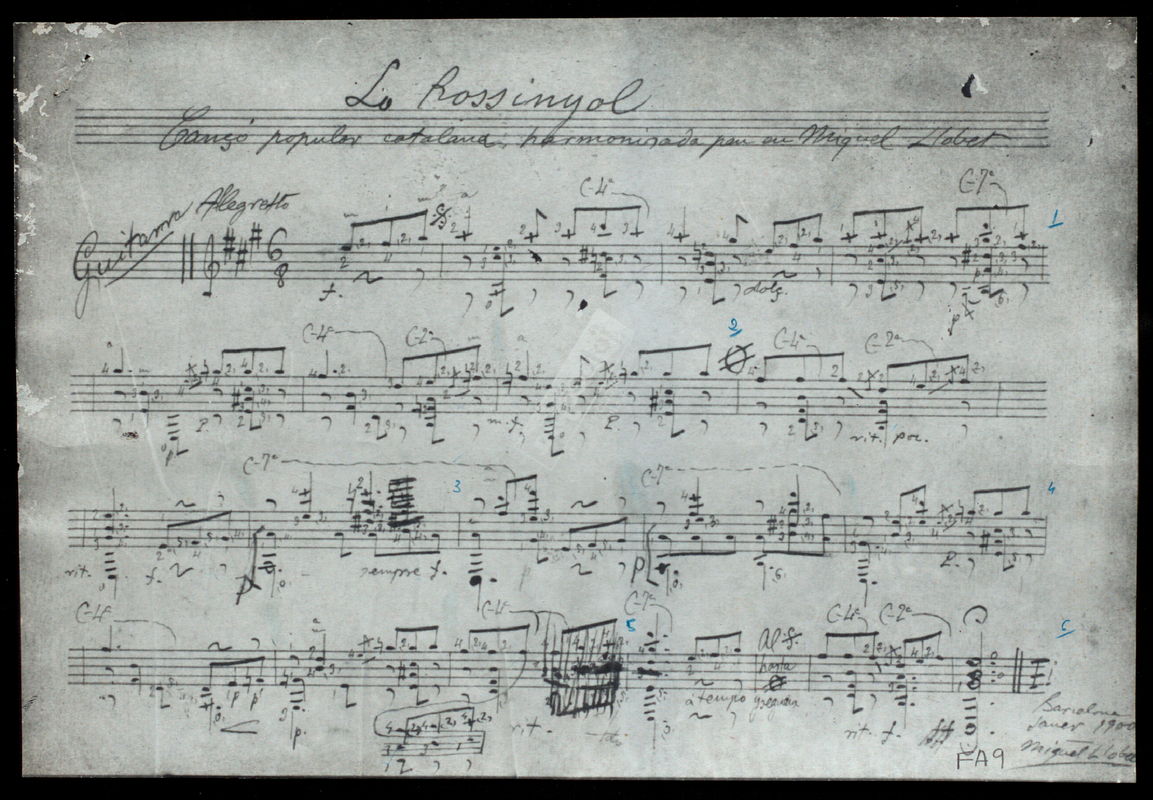 Lo Rossinyol
Cançó popular catalana, harmonisada per en Miquel Llobet
Guitarra
Allegretto
6
8
C-4ª
C-7ª
1
f.
dolç.
C-4ª
C-2ª
2
C-4ª
C-2ª
p.
m.f.
p.
rit. poc.
C-7ª
3
C-7ª
4
rit.
f.
p
sempre f.
p
p
p.
C-4ª
C-4ª
C-7ª
5
Al
hasta
y seguir
C-4ª
C-2ª
6
p.
rit.
a tempo
rit. f. ff
Barcelona
Janer 1900
Miquel Llobet
FA9